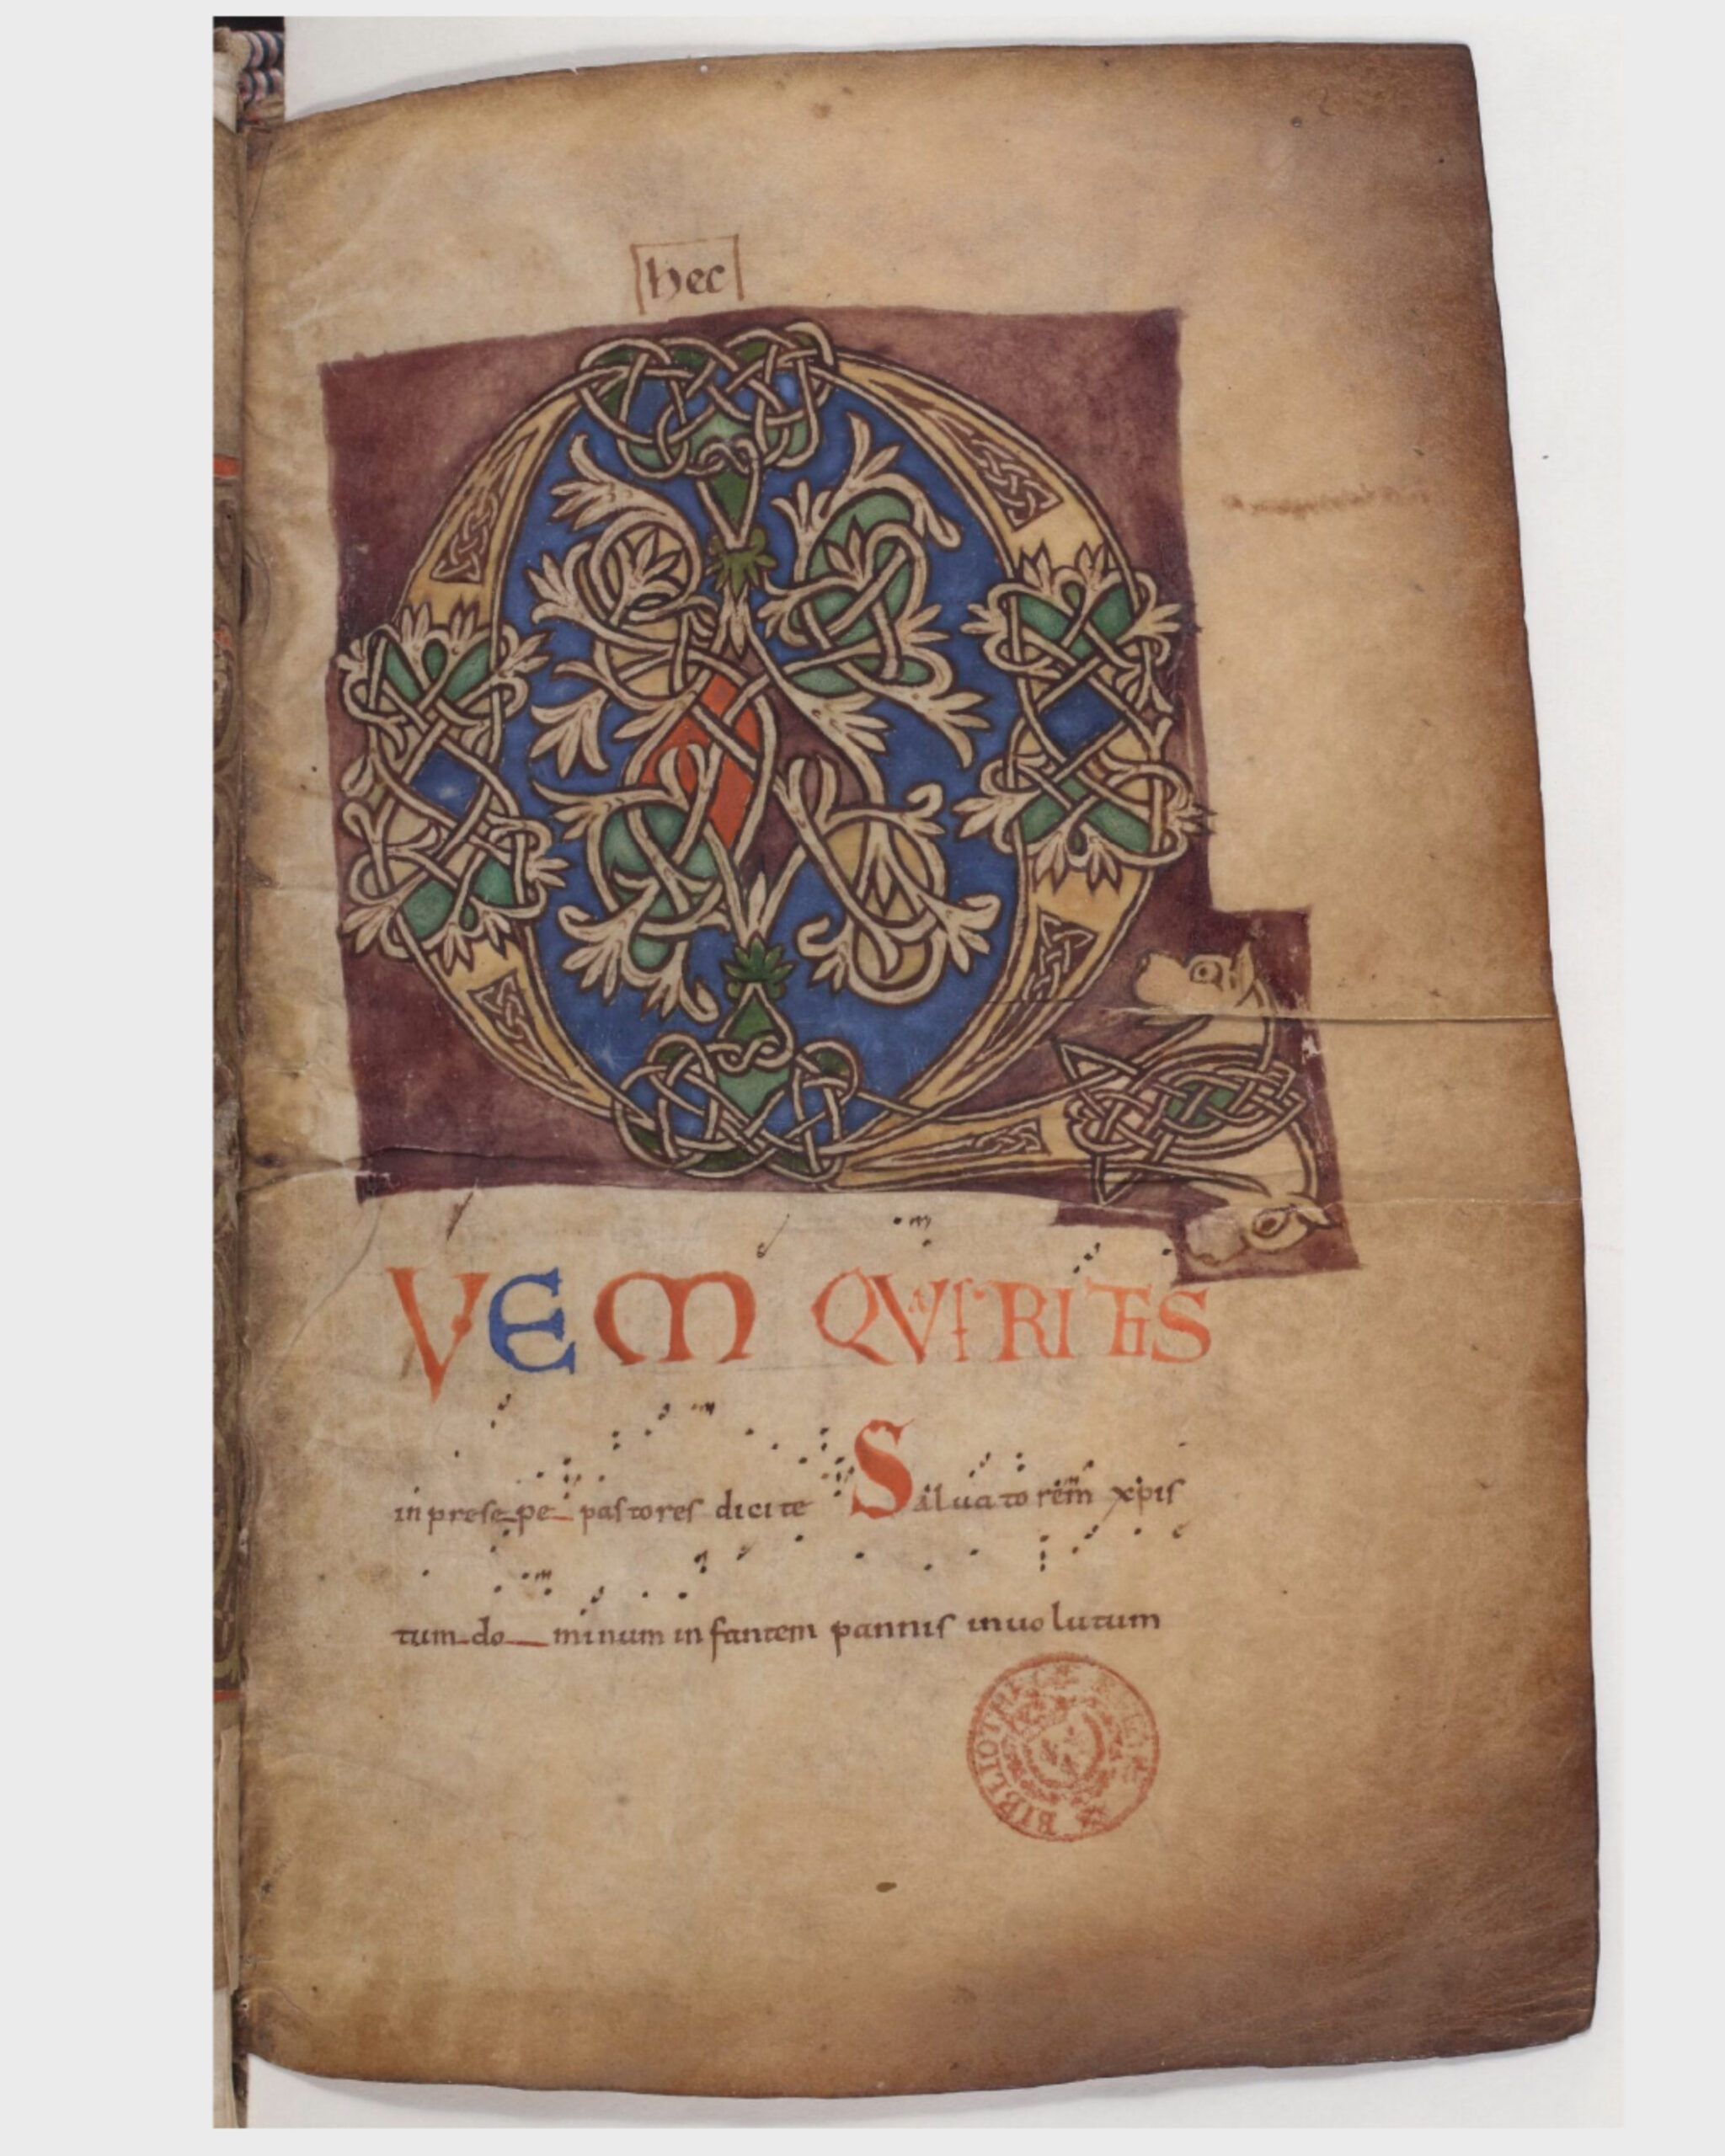 hec
Q
VEM QVęRITIS
in presepe pastores dicite Saluatorem xpis
tum do minum infantem pannis inuolutum
BIBLIOTHE